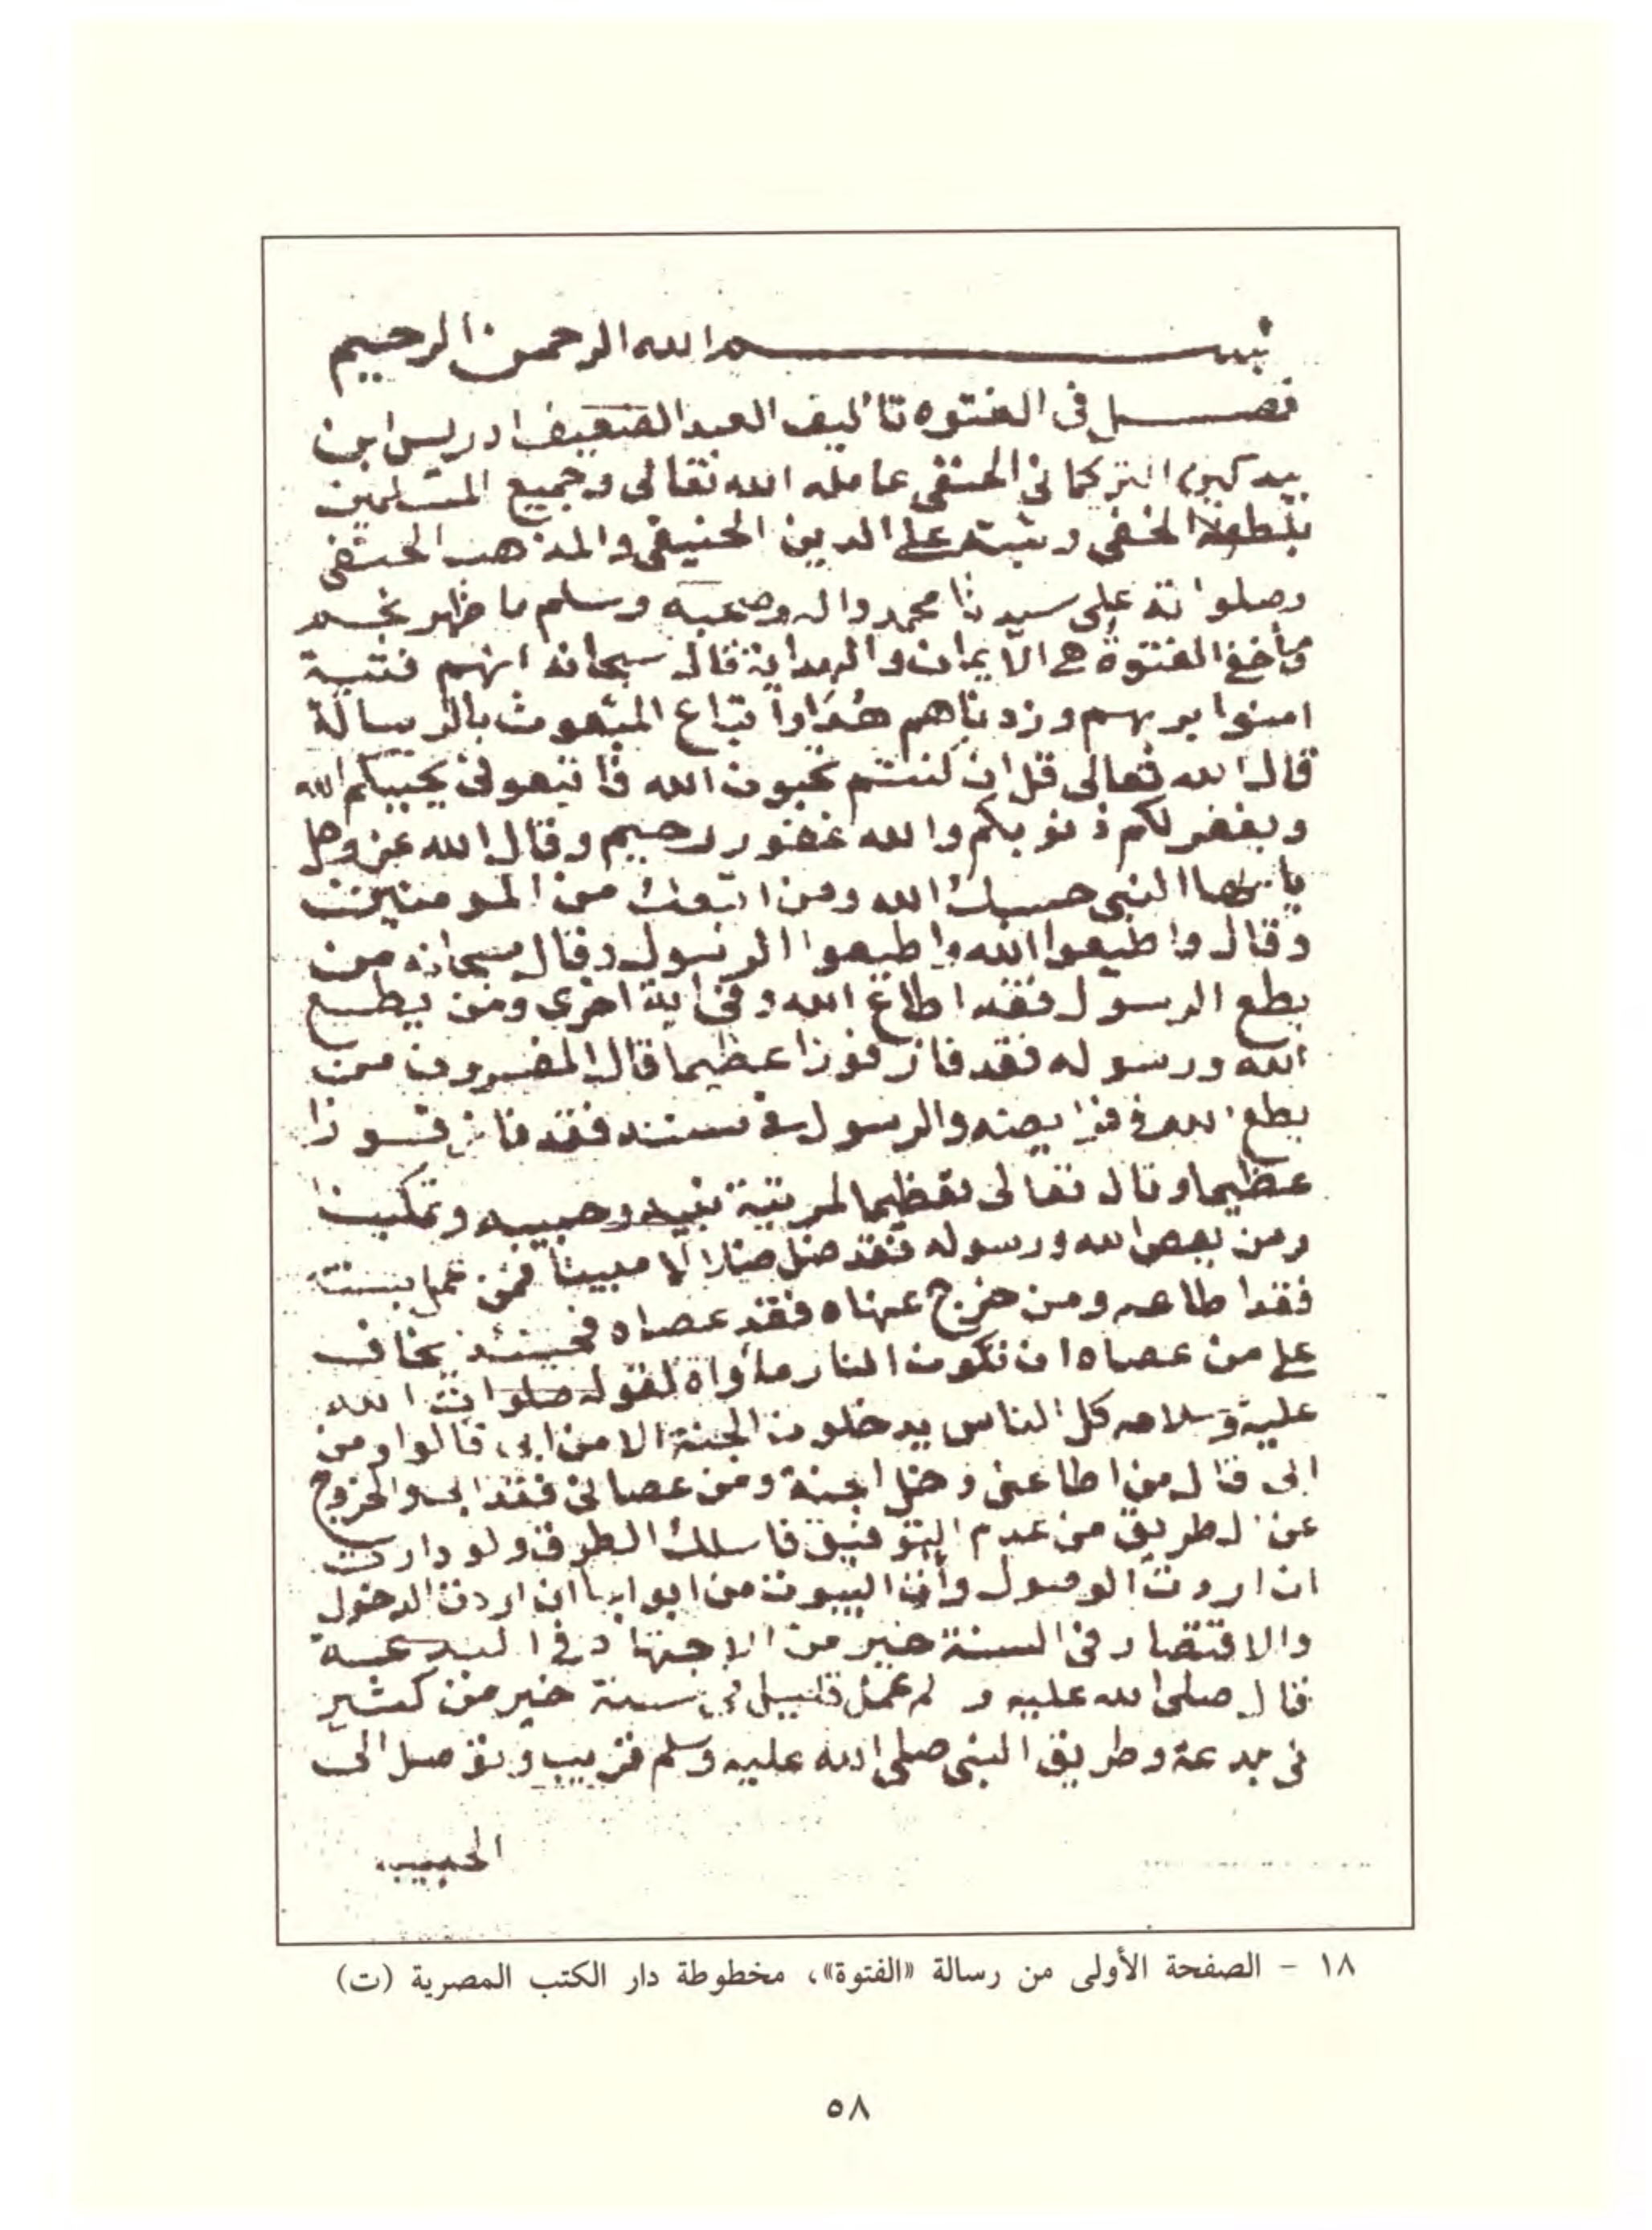 بسم الله الرحمن الرحيم
فصل فى الفتوه تأليف العبد الضعيف ادريس ابن
بيدكين التركمانى الحنفى عامله الله تعالى وجميع المسلمين
بلطفه الخفى وثبته على الدين الحنيفى والمذهب الحنفى
وصلواته على سيدنا محمد واله وصحبه وسلم ما ظهر نجم
وما خفى الفتوة هى الايمان والهداية قال سبحانه انهم فتية
امنوا بربهم وزدناهم هدا واتباع المبعوث بالرسالة
قال الله تعالى قل ان كنتم تحبون الله فاتبعونى يحببكم الله
ويغفر لكم ذنوبكم والله غفور رحيم وقال الله عز وجل
يا ايها النبى حسبك الله ومن اتبعك من المومنين
وقال واطيعوا الله واطيعوا الرسول وقال سبحانه من
يطع الرسول فقد اطاع الله وفى اية اخرى ومن يطع
الله ورسوله فقد فاز فوزا عظيما قال المفسرون من
يطع الله فى فرايضه والرسول فى سننه فقد فاز فوزا
عظيما وقال تعالى تعظيما لمرتبة نبيه وحبيبه وتمكينا
ومن يعص الله ورسوله فقد ضل ضلالا مبينا فمن عمل بسنته
فقد اطاعه ومن خرج عنها فقد عصاه فحينئذ يخاف
على من عصاه ان تكون النار مأواة لقوله صلوات الله
عليه وسلامه كل الناس يدخلون الجنة الا من ابى قالوا ومن
ابى قال من اطاعنى دخل الجنة ومن عصانى فقد ابى والخروج
عن الطريق من عدم التوفيق فاسلك الطرق ولو دارت
ان اردت الوصول وأت البيوت من ابوابها ان اردت الدخول
والاقتصاد فى السنة خير من الاجتهاد فى البدعة
قال صلى الله عليه و لم عمل قليل فى سنة خير من كثير
فى بدعة وطريق النبى صلى الله عليه وسلم قريب وتوصل الى
الحبيب
١٨ - الصفحة الأولى من رسالة «الفتوة»، مخطوطة دار الكتب المصرية (ت)
٥٨